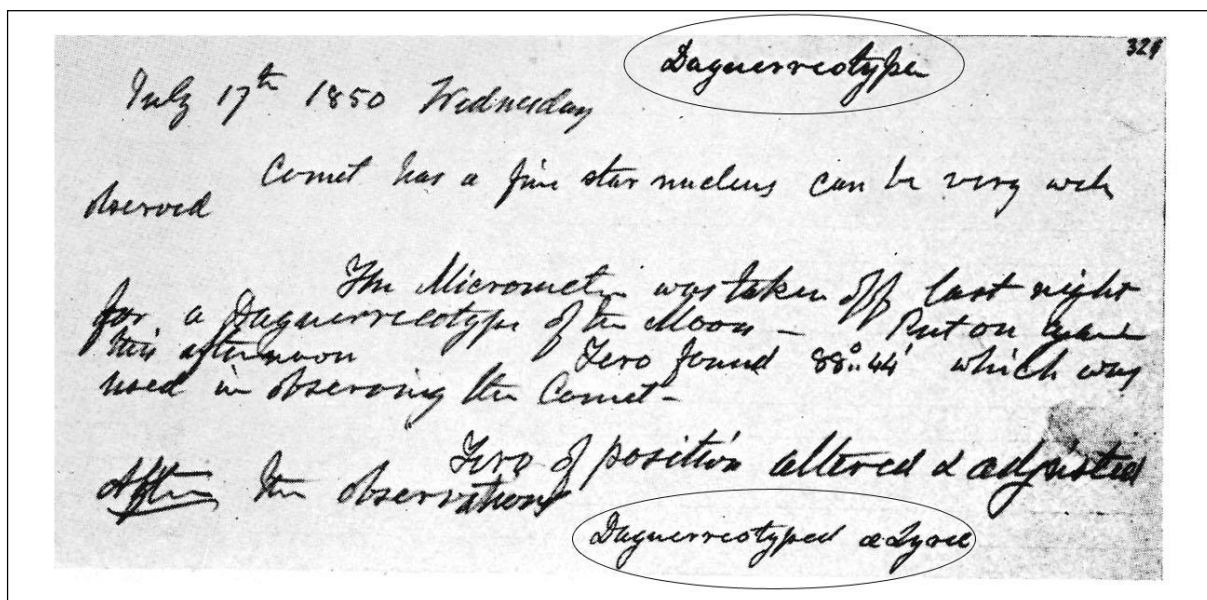 Daguerreotype
329
July 17th 1850 Wednesday
Comet has a fine star nucleus can be very well
observed
The Micrometer was taken off last night
for a Daguerreotype of the Moon – Put on again
this afternoon Zero found 88°.. 44' which was
used in observing the Comet –
Zero of position altered & adjusted
After the observations
Daguerreotyped α Lyrae